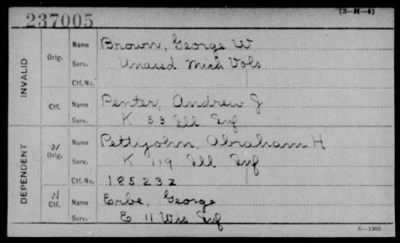 237005
(3-H-4)
INVALID
Orig.
Name Brown, George W
Serv. Unased Mich Vols
Ctf. No.
Ctf.
Name Penter, Andrew J
Serv. K 53 Ill Inf
DEPENDENT
W Orig.
Name Pettyjohn, Abraham H
Serv. K 119 Ill Inf
Ctf. No. 185232
W Ctf.
Name Erbe, George
Serv. E 11 Wis Inf